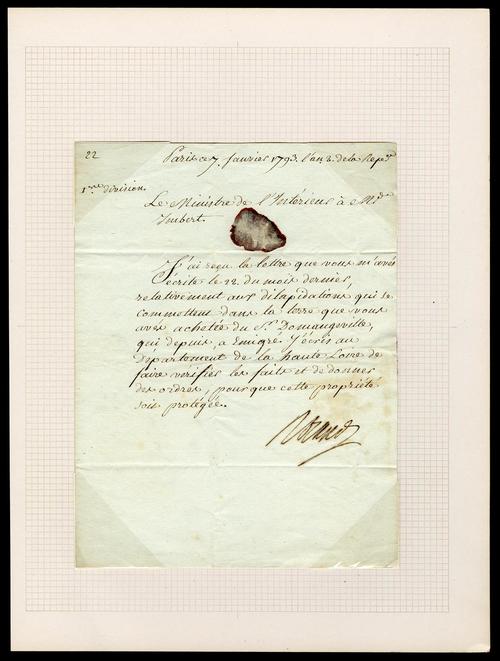 22
Paris ce 7. janvier 1793. l'an 2. de la Repque
1ere division.
Le Ministre de l'Intérieur à Mr
Imbert.
J'ai reçu la lettre que vous m'avés
écrite le 22. du mois dernier,
relativement aux dilapidations qui se
commettent dans la terre que vous
avés achetée du Sr. Domangeville,
qui depuis a Emigré. J'écris au
département de la haute Loire de
faire vérifier les faits et de donner
des ordres, pour que cette propriété
soit protégée.
Roland